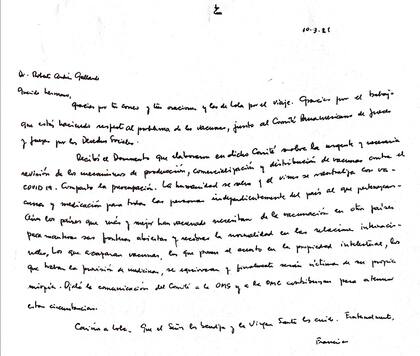 10-3-21
Dr. Roberto Andrés Gallardo
Querido hermano,
Gracias por tu correo y tus oraciones y las de Lola por el viaje. Gracias por el trabajo
que estás haciendo respecto al problema de las vacunas, junto al Comité Panamericano de Jueces
y Juezas por los Derechos Sociales.
Recibí el Documento que elaboraron en dicho Comité sobre la urgente y necesaria
revisión de los mecanismos de producción, comercialización y distribución de vacunas contra el
COVID 19. Comparto la preocupación. La humanidad se salva y el virus se neutraliza con va-
cunas y medicación para todas las personas independientemente del país al que pertenezcan.
Aún los países que más y mejor han vacunado necesitan de la vacunación en otros países
para mantener sus fronteras abiertas y recobrar la normalidad en las relaciones internacio-
nales. Los que acaparan vacunas, los que ponen el acento en la propiedad intelectual, los
que traban la provisión de medicinas, se equivocan y finalmente serán víctimas de su propia
miopía. Ojalá la comunicación del Comité a la OMS y a la OMC contribuyan para atender
estas circunstancias.
Cariños a Lola. Que el Señor los bendiga y la Virgen Santa los cuide. Fraternalmente,
Francisco